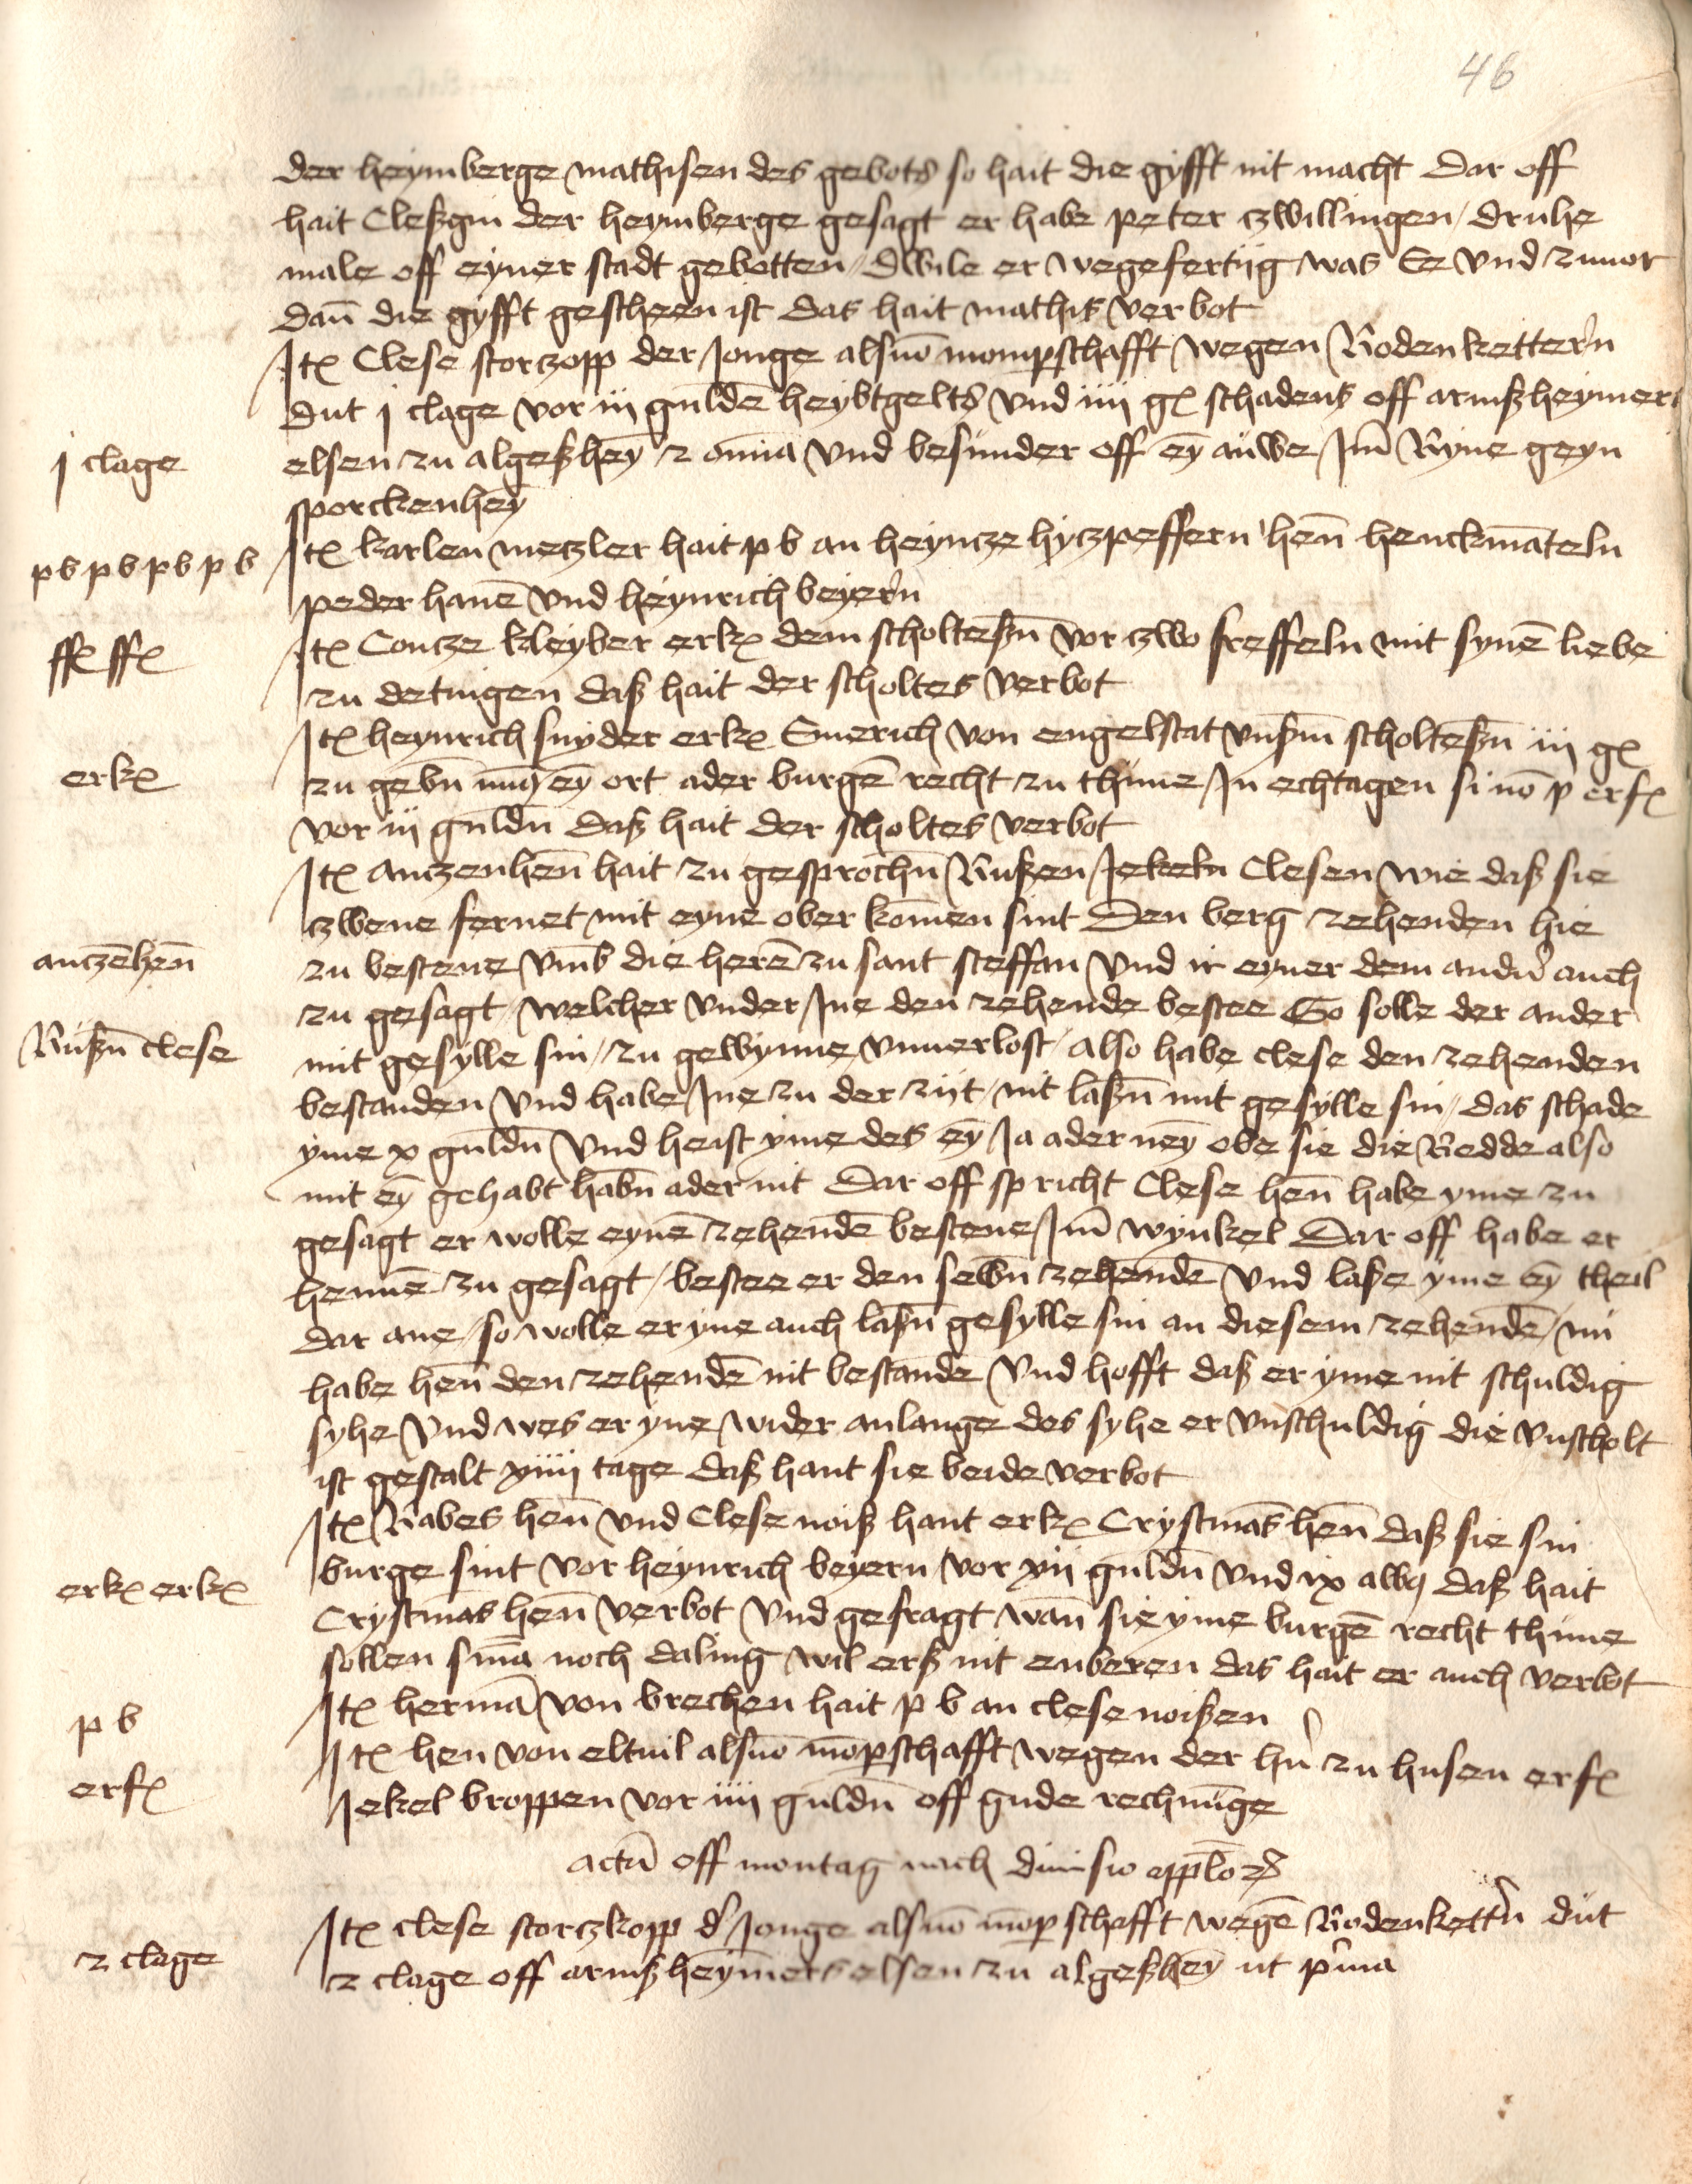 46
der heymberge mathisen des gebots so hait die gyfft nit macht Dar off
hait Cleßgin der heymberge gesagt er habe peter czwillingen / druhe
male off eyner stadt gebotten / dwile er wegefertiig was Ee vnd zuuor
dan̄ die gyfft gescheen ist das hait mathis verbot
Itꝭ Clese storczopp der Jonge alsuō momp̲schafft wegen Rodenketter̓n
dut j clage vor iij gulden̄ heybtgelts vnd iiij gꝭ schadens off armßheymers
j clage
elsen zu algeßheȳ ⁊ om̄ia vnd besunder off eȳ auwe Jm̄ Ryne geyn
sporckenheȳ
pb pb pb pb
Itꝭ karlen meczler hait p b an heyncze hyczpeffern hen̄ henckmāteln
peder hanē vnd heynrich beyer̓n
ffꝭ ffꝭ
Itꝭ Concze kleyber erkꝭ dem scholteßn̄ vor czwo freffeln mit synē liebe
zu detingen daß hait der scholtes verbot
Itꝭ heynrich snyder erkꝭ Emerich von engelstat vnßm̄ scholteßn̄ iij gꝭ
erkꝭ
zu gebn̄ myn̄ eȳ ort ader burgē recht zu thune Jn echtagen si nō p erfꝭ
vor iij guldn̄ daß hait der scholtes verbot
Itꝭ Anczenhen̄ hait zu gesprochn̄ Rußen Jekeln Clesen wie daß sie
czwene fernet mit eyne ober komen sint Den berg zehenden hie
anczēhen̄
zu bestene vmb die herē zu sant steffan vnd ir eyner dem andn̓ auch
zu gesagt / welcher vnder Jne den zehende bestee So solle der ander
Rußn̄ clese
mit geselle sin / zu gewynne vnuerlost / also habe clese den zehenden
bestanden vnd habe Jne zu der ziit / nit laßn̄ mit gesylle sin / das schade
yme x guldn̄ vnd heist yme des eȳ Ja ader neȳ obe sie die Redde also
mit eȳ gehabt habn̄ ader nit Dar off spricht Clese hen̄ habe yme zu
gesagt er wolle eynē zehendē bestene Jm̄ wynkel Dar off habe er
hennē zu gesagt / bestee er den sebn̄ zehendē vnd laße yme eȳ theil
dar ane / so wolle er yne auch laßn̄ gesylle sin an diesem zehendē / nu
habe hen̄ den zehendē nit bestandē vnd hofft daß er yme nit schuldig
syhe vnd wes er yne wider anlange des syhe er vnschuldig die vnscholt
ist gestalt xiiij tage daß hant sie beide verbot
Itꝭ Rabes hen̄ vnd Clese noiß hant erkꝭ Crystmās hen̄ daß sie sin
erkꝭ erkꝭ
burge sint vor heynrich beyern vor xij guldn̄ vnd ix alb⁹ daß hait
Crystmās hen̄ verbot vnd gefragt wan̄ sie yme burgē recht thune
sollen sm̄a noch daling wil erß nit enberen das hait er auch verbot
p b
Itꝭ hermā von brechen hait p b an clese noißen
Itꝭ hen von eltuil alsuō mōp̲schafft wegen der hn̓ zu husen erfꝭ
erfꝭ
Jekel broppen vor iiij guldn̄ off gude rechnūge
actū off montag nach diuisio appl̄oꝝ
Itꝭ clese storczkopp d̓ Jonge alsuō mōp̲schafft wegē Rodenkett̓n dut
2 clage
2 clage off armßheymers elsen zu algeßheȳ ut p̓ma